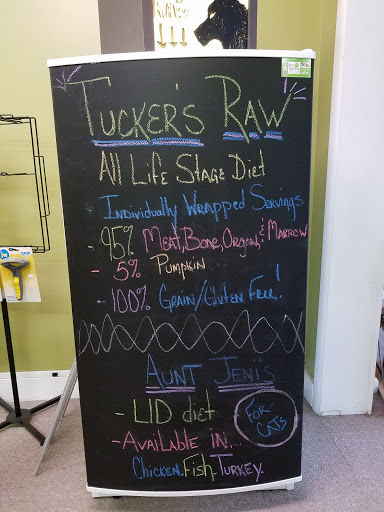 TUCKER'S RAW
All Life Stage Diet
- Individually Wrapped Servings
- 95% Meat, Bone, Organ, & Marrow
- 5% Pumpkin
- 100% Grain/Gluten Free!
AUNT JENIS
- LID diet
FOR CATS
- Available in...
Chicken. Fish. Turkey.